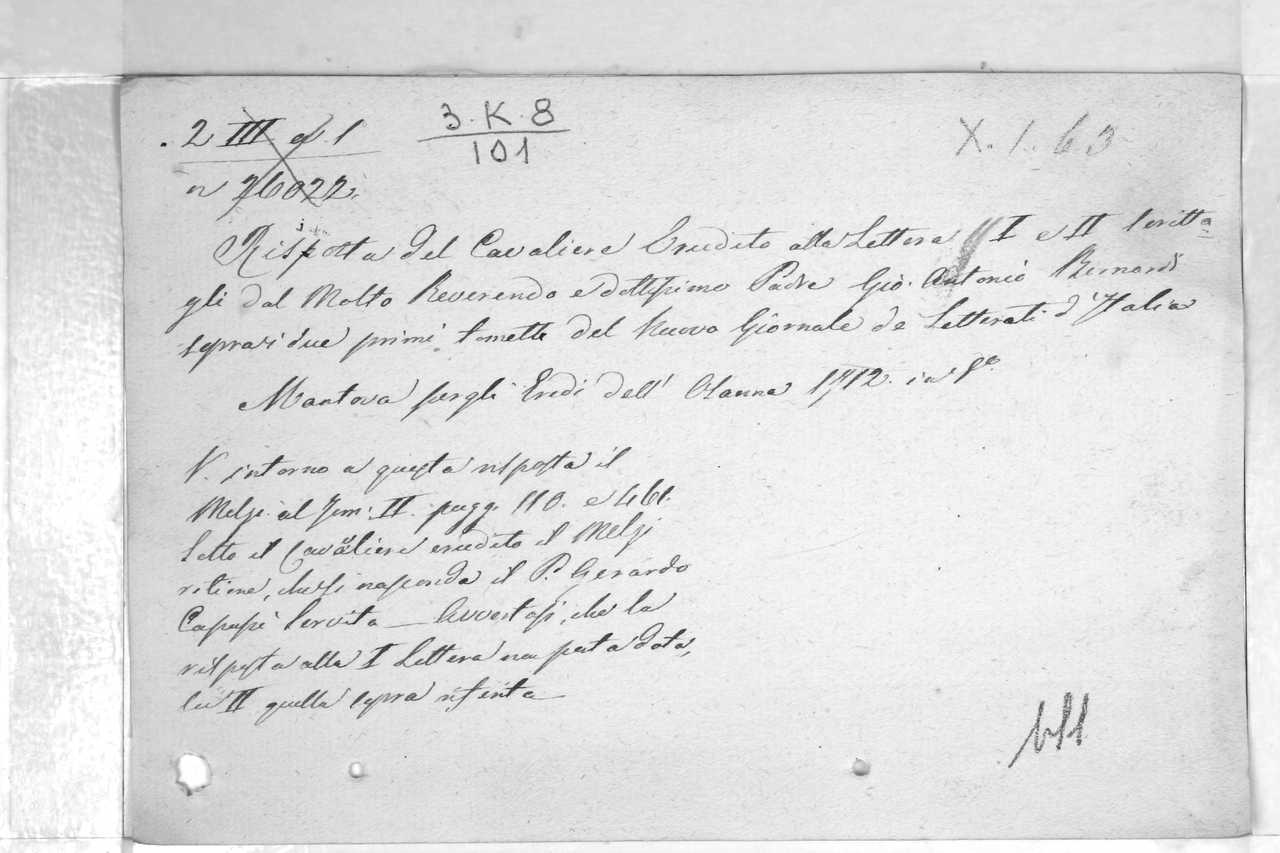 2 III 1
3.K.8
101
X.1.63
n 26022
Risposta del Cavaliere Erudito alla Lettera I e II scritta
gli dal Molto Reverendo e dottissimo Padre Gio. Antonio Bernardi
sopra i due primi tometti del Nuovo Giornale de Letterati d'Italia
Mantova per gli Eredi dell' Osanna 1712. in 8°
V. intorno a questa risposta il
Melzi al Tom. II. pagg. 110. e 461.
Sotto il Cavaliere erudito il Melzi
ritiene, che si nasconda il P. Gerardo
Capassi Servita — Avvertasi, che la
risposta alla I Lettera non porta data,
la II quella sopra riferita